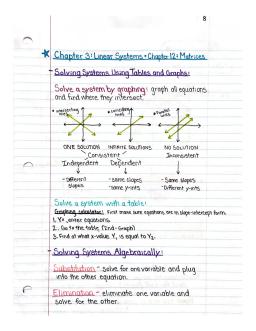 8
Chapter 3: Linear Systems + Chapter 12: Matrices
- Solving Systems Using Tables and Graphs:
Solve a system by graphing: graph all equations
and find where they intersect.
intersecting lines
coinciding lines
Parallel lines
ONE SOLUTION INFINITE SOLUTIONS NO SOLUTION
Consistent Inconsistent
Independent Dependent
- Different slopes
- same slopes
- same y-ints
- Same slopes
- Different y-ints
Solve a system with a table:
Graphing calculator: First make sure equations are in slope-intercept form.
1. Y= , enter equations.
2. Go to the table (2nd - Graph)
3. Find at what x-value Y₁ is equal to Y₂.
- Solving Systems Algebraically:
Substitution - solve for one variable and plug
into the other equation.
Elimination - eliminate one variable and
solve for the other.